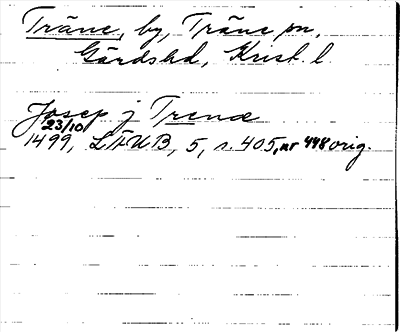 Träne, by, Träne sn,
Gärds hd, Krist. l.
Josep j Trenæ
23/10
1499, LÄUB, 5, s. 405, nr 448 orig.